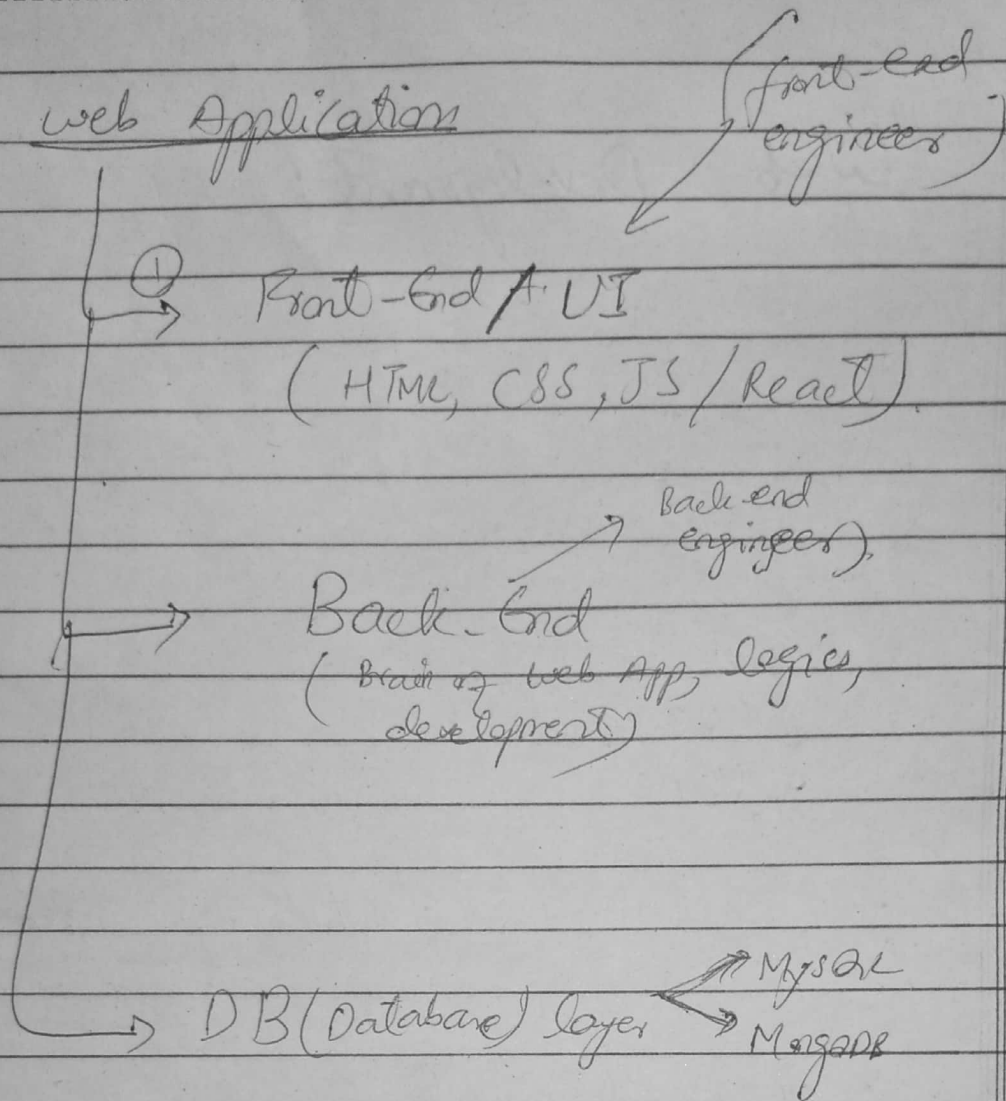 web Application
(front-end
engineer)
①
Front-End / UI
(HTML, CSS, JS/React).
Back-end
engineer).
Back-End
(Brain of web App, logics,
development)
DB (Database) layer
MySQL
MongoDB